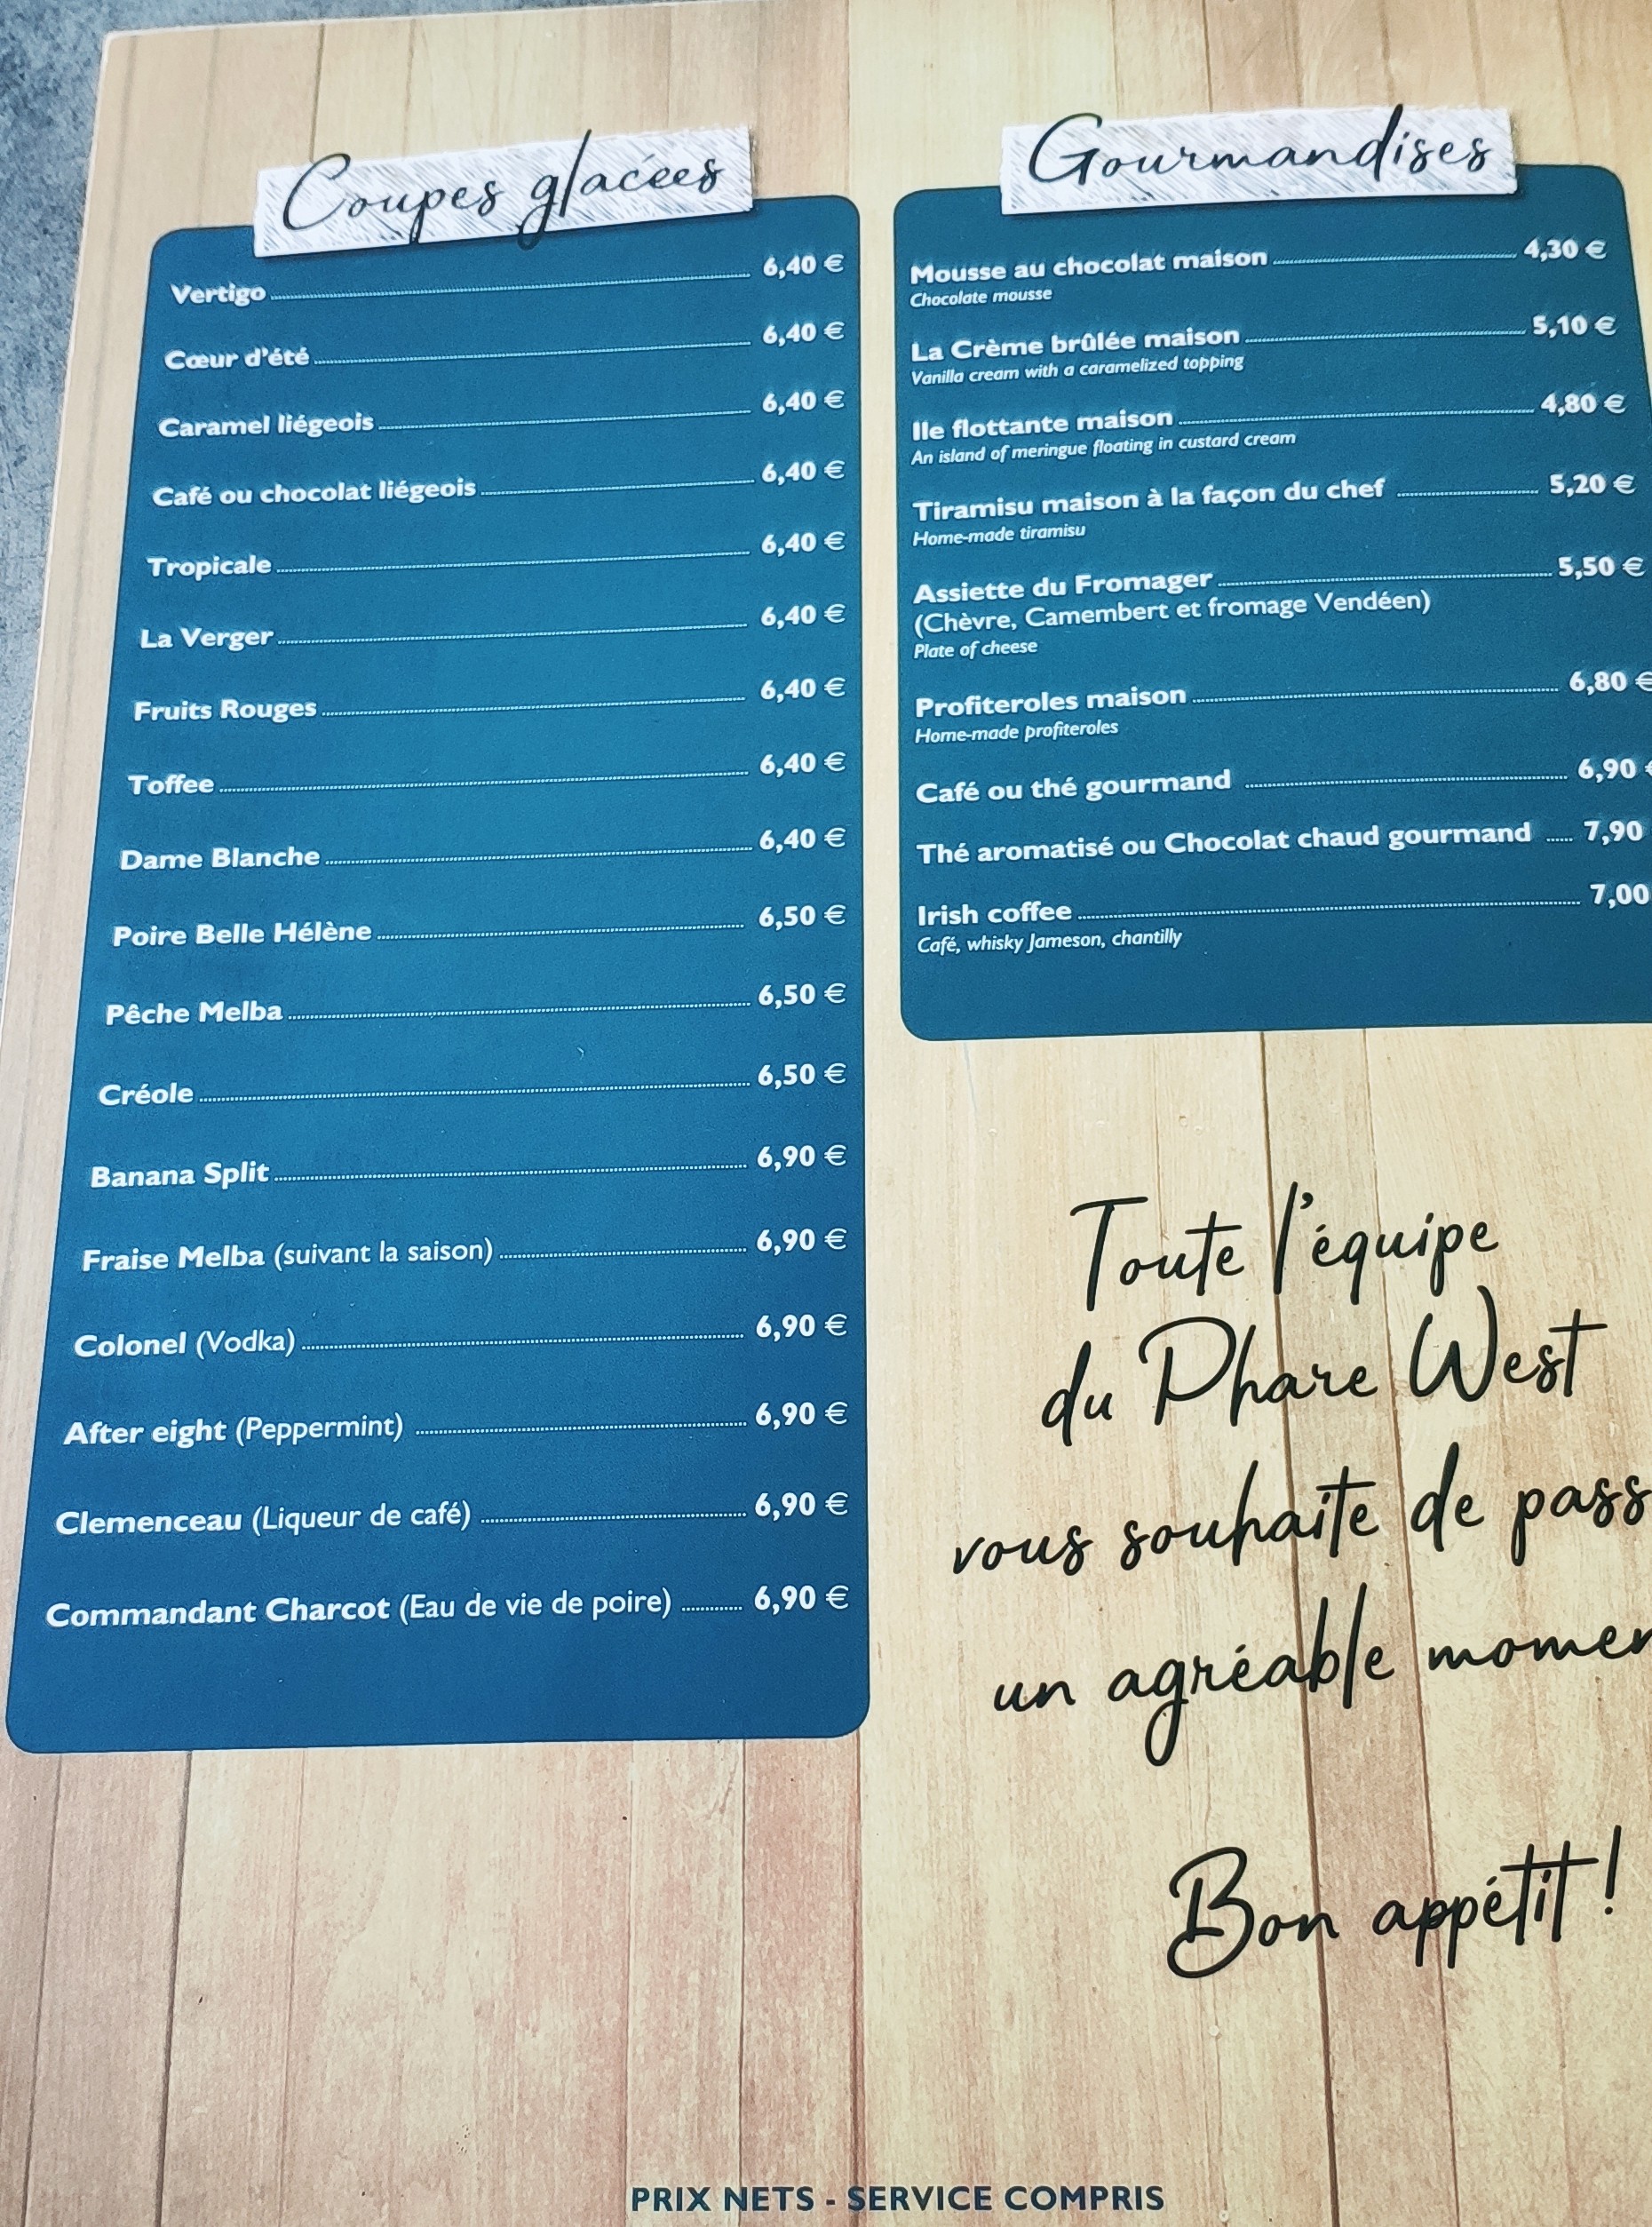 Coupes glacées
Vertigo 6,40 €
Cœur d'été 6,40 €
Caramel liégeois 6,40 €
Café ou chocolat liégeois 6,40 €
Tropicale 6,40 €
La Verger 6,40 €
Fruits Rouges 6,40 €
Toffee 6,40 €
Dame Blanche 6,40 €
Poire Belle Hélène 6,50 €
Pêche Melba 6,50 €
Créole 6,50 €
Banana Split 6,90 €
Fraise Melba (suivant la saison) 6,90 €
Colonel (Vodka) 6,90 €
After eight (Peppermint) 6,90 €
Clemenceau (Liqueur de café) 6,90 €
Commandant Charcot (Eau de vie de poire) 6,90 €
Gourmandises
Mousse au chocolat maison 4,30 €
Chocolate mousse
La Crème brûlée maison 5,10 €
Vanilla cream with a caramelized topping
Ile flottante maison 4,80 €
An island of meringue floating in custard cream
Tiramisu maison à la façon du chef 5,20 €
Home-made tiramisu
Assiette du Fromager 5,50 €
(Chèvre, Camembert et fromage Vendéen)
Plate of cheese
Profiteroles maison 6,80 €
Home-made profiteroles
Café ou thé gourmand 6,90 €
Thé aromatisé ou Chocolat chaud gourmand 7,90
Irish coffee 7,00
Café, whisky Jameson, chantilly
Toute l'équipe
du Phare West
vous souhaite de pass
un agréable momen
Bon appétit !
PRIX NETS - SERVICE COMPRIS